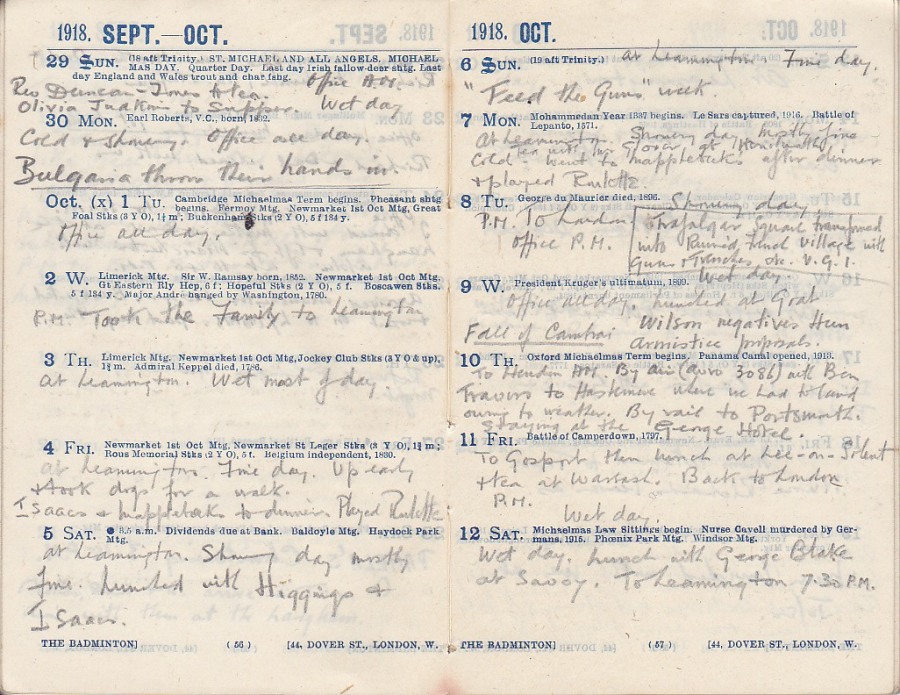 1918. SEPT.—OCT.
29 SUN. (18 aft Trinity.) ST. MICHAEL AND ALL ANGELS. MICHAEL
MAS DAY. Quarter Day. Last day Irish fallow deer shtg. Last
day England and Wales trout and char fshg. Office A.M.
Rev Duncan-Jones to tea.
Olivia Judkins to Supper. Wet day
30 MON. Earl Roberts, V.C., born, 1832.
Cold & Showery. Office all day.
Bulgaria throw their hands in.
Oct. (x) 1 TU. Cambridge Michaelmas Term begins. Pheasant shtg
begins. Fermoy Mtg. Newmarket 1st Oct Mtg, Great
Foal Stks (3 Y O), 1¼ m; Buckenham Stks (2 Y O), 5 f 134 y.
Office all day.
2 W. Limerick Mtg. Sir W. Ramsay born, 1852. Newmarket 1st Oct Mtg.
Gt Eastern Rly Hcp, 6 f; Hopeful Stks (2 Y O), 5 f. Boscawen Stks.
5 f 134 y. Major André hanged by Washington, 1780.
P.M. Took the family to Leamington
3 TH. Limerick Mtg. Newmarket 1st Oct Mtg, Jockey Club Stks (3 Y O & up),
1¾ m. Admiral Keppel died, 1786.
at Leamington. Wet most of day.
4 FRI. Newmarket 1st Oct Mtg, Newmarket St Leger Stks (3 Y O),
Rous Memorial Stks (2 Y O), 5 f. Belgium independent, 1830.
at Leamington. Fine day. Up early
& took dogs for a walk.
Isaacs & Mapplebecks to dinner. Played Roulette
5 SAT. ● 3.5 a.m. Dividends due at Bank. Baldoyle Mtg. Haydock Park
Mtg.
at Leamington. Showery day mostly
fine. Lunched with Higgings &
Isaacs.
THE BADMINTON] (56) [44, DOVER ST., LONDON, W.
1918. OCT.
6 SUN. (19 aft Trinity.) at Leamington. Fine day.
"Feed the Guns" week.
7 MON. Mohammedan Year 1337 begins. Le Sars captured, 1916. Battle of
Lepanto, 1571.
At Leamington. Showery day mostly fine
Cold. Tea with Mrs Glover at
went to Mapplebecks after dinner
& played Roulette.
8 TU. George du Maurier died, 1896. Showery day.
P.M. To London
Office P.M.
Trafalgar Square transformed
into Ruined French Village with
Guns & Trenches, etc. V.G.I.
Wet day.
9 W. President Kruger's ultimatum, 1899.
Office all day. Lunched at Goat
Fall of Cambrai
Wilson negatives Hun
Armistice proposals.
10 TH. Oxford Michaelmas Term begins. Panama Canal opened, 1913.
To Hendon A.M. By air (Avro 3086) with Ben
Travers to Haslemere where we had to land
owing to weather. By rail to Portsmouth.
Staying at the George Hotel.
11 FRI. Battle of Camperdown, 1797.
To Gosport then lunch at Lee-on-Solent
& tea at Warsash. Back to London
P.M.
Wet day.
12 SAT. Michaelmas Law Sittings begin. Nurse Cavell murdered by Ger-
mans, 1915. Phœnix Park Mtg. Windsor Mtg.
Wet day. Lunch with George Blake
at Savoy. To Leamington 7.30 P.M.
THE BADMINTON] (57) [44, DOVER ST., LONDON, W.